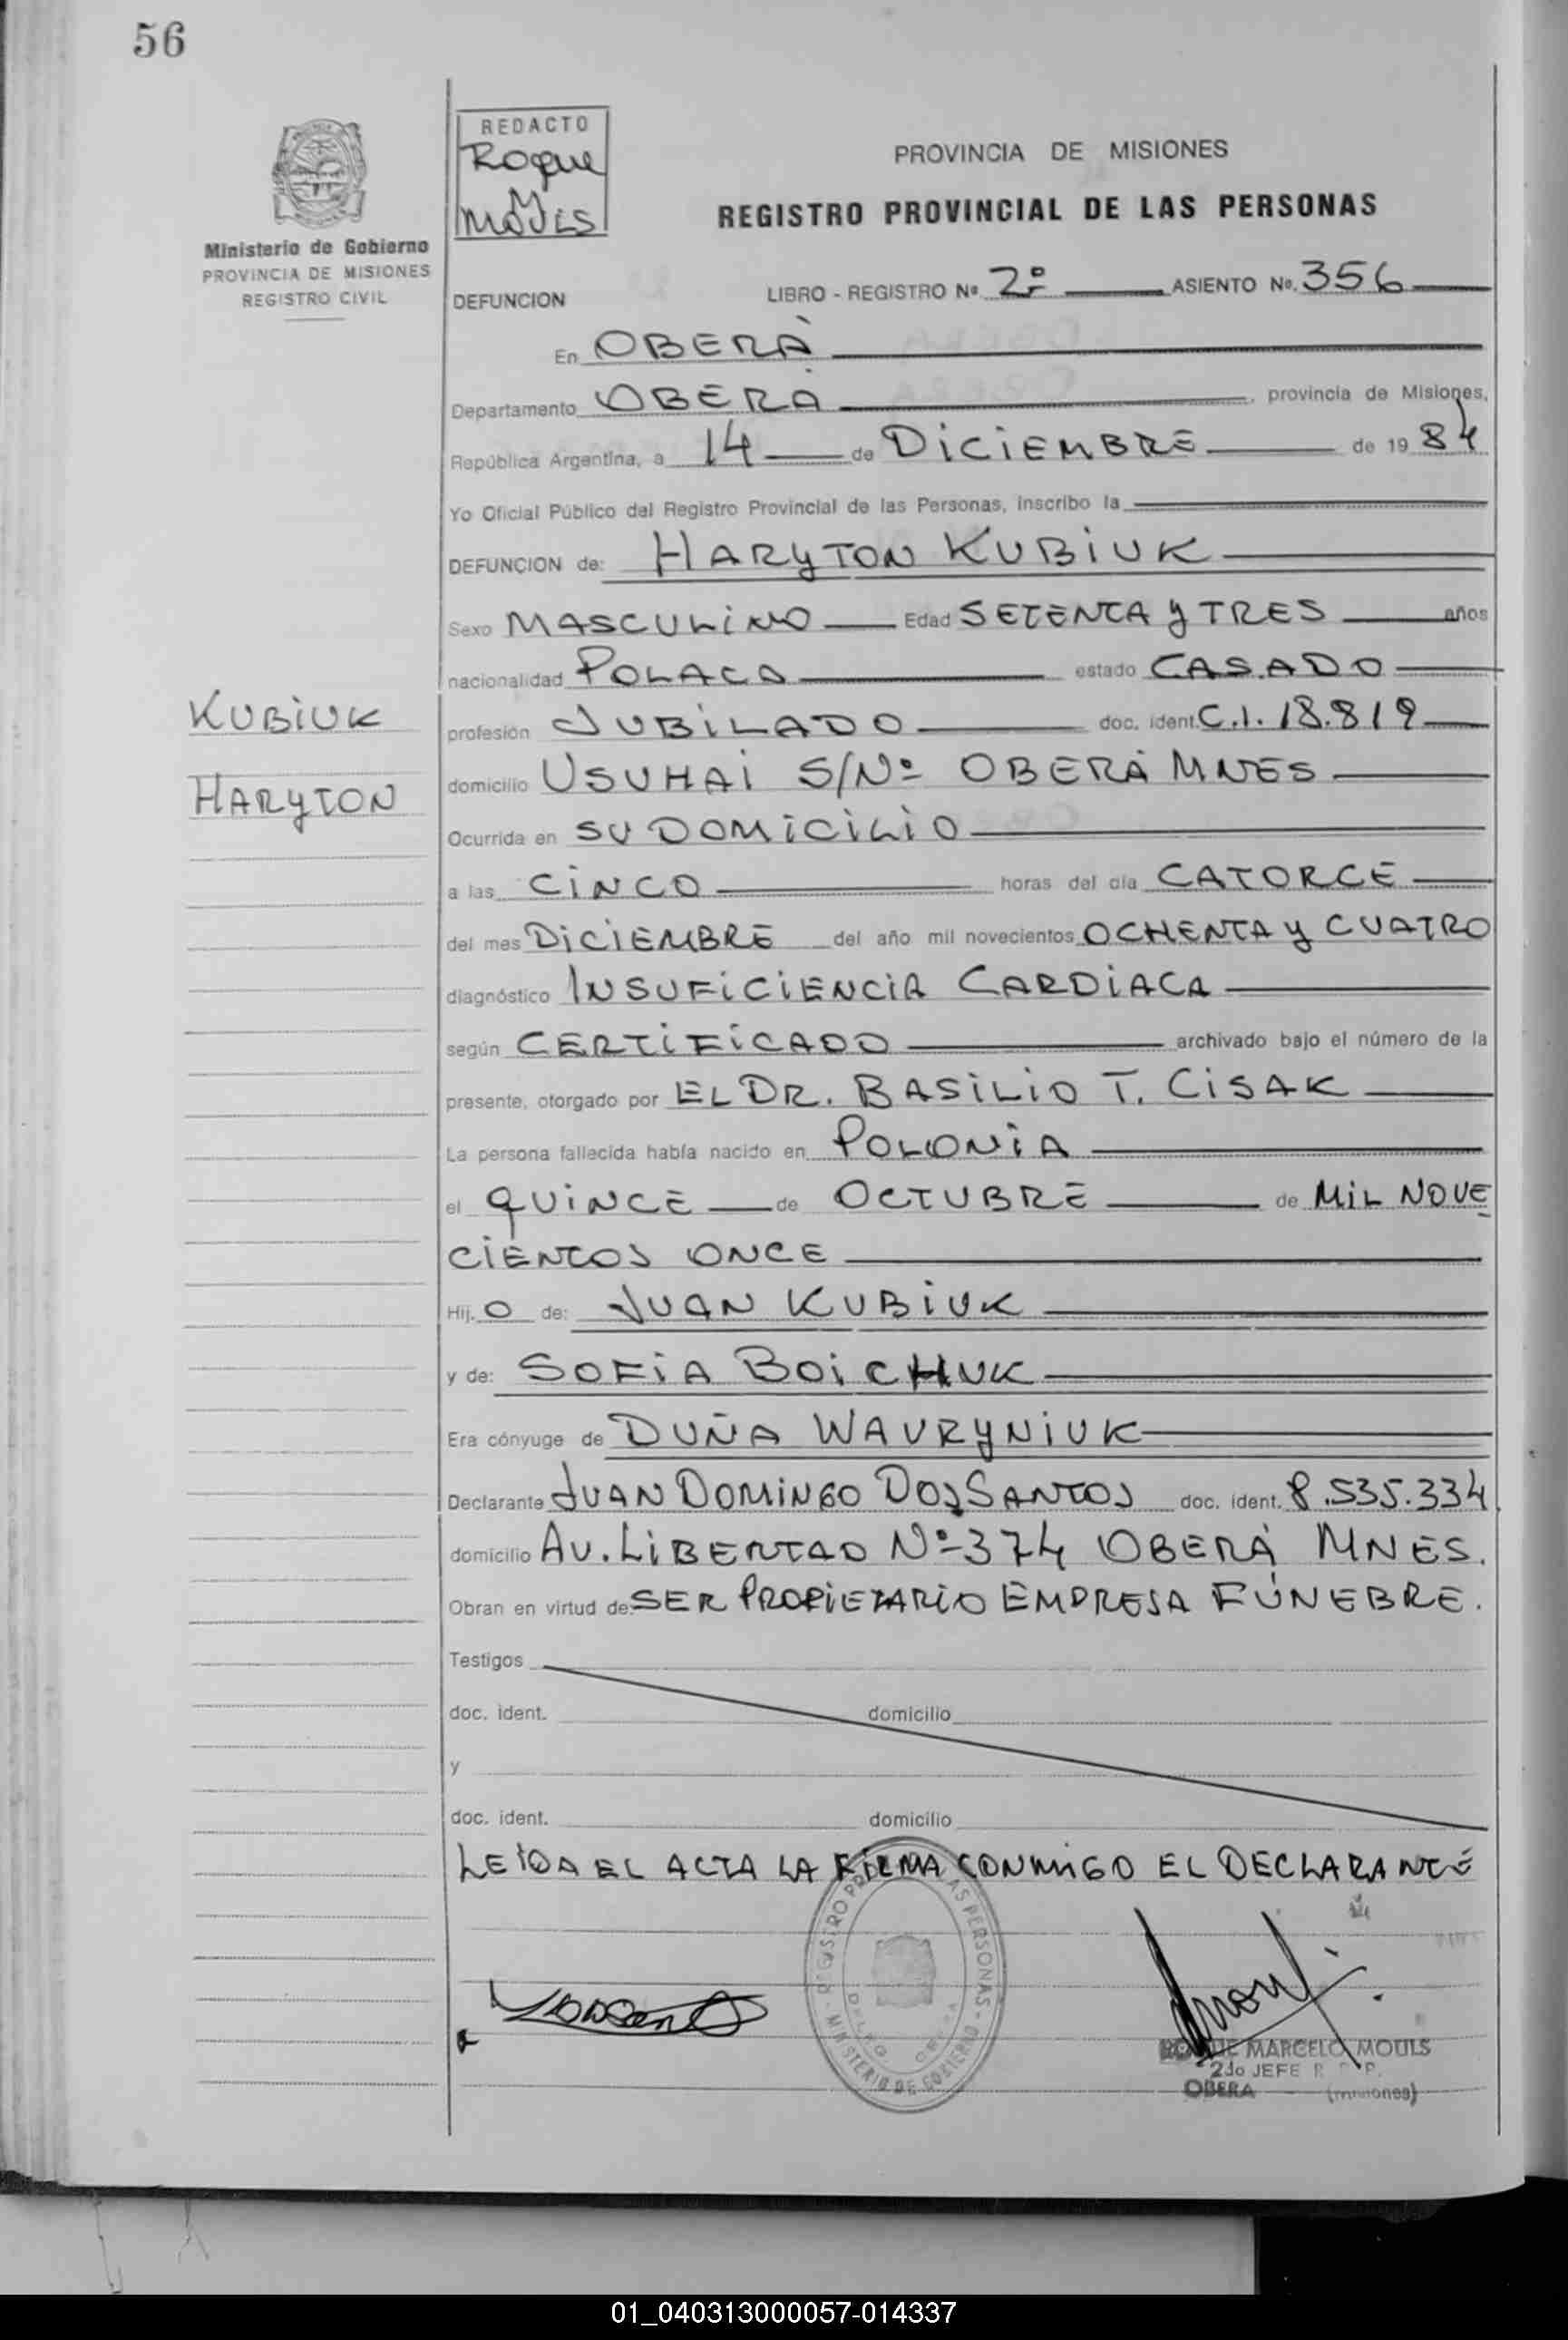 56
REDACTO
Roque
M
MOULS
PROVINCIA DE MISIONES
REGISTRO PROVINCIAL DE LAS PERSONAS
Ministerio de Gobierno
PROVINCIA DE MISIONES
REGISTRO CIVIL
DEFUNCION LIBRO - REGISTRO Nº 2º ASIENTO No. 356
En OBERÁ
Departamento OBERÁ, provincia de Misiones,
República Argentina, a 14 de DICIEMBRE de 1984
Yo Oficial Público del Registro Provincial de las Personas, inscribo la
DEFUNCION de: HARYTON KUBIUK
Sexo MASCULINO Edad SETENTA y TRES años
nacionalidad POLACA estado CASADO
KUBIUK
HARYTON
profesión JUBILADO doc. ident. C.I. 18.819
domicilio USUHAI S/Nº OBERÁ MNES
Ocurrida en SU DOMICILIO
a las CINCO horas del día CATORCE
del mes DICIEMBRE del año mil novecientos OCHENTA y CUATRO
diagnóstico INSUFICIENCIA CARDIACA
según CERTIFICADO archivado bajo el número de la
presente, otorgado por EL DR. BASILIO T. CISAK
La persona fallecida había nacido en POLONIA
el QUINCE de OCTUBRE de MIL NOVE
CIENTOS ONCE
Hij.O de: JUAN KUBIUK
y de: SOFIA BOICHUK
Era cónyuge de DUÑA WAURYNIUK
Declarante JUAN DOMINGO DOS SANTOS doc. ident. 8.535.334
domicilio AV. LIBERTAD Nº 374 OBERÁ MNES.
Obran en virtud de: SER PROPIETARIO EMPRESA FÚNEBRE.
Testigos
doc. ident. domicilio
y
doc. ident. domicilio
LEIDA EL ACTA LA FIRMA CONMIGO EL DECLARANTE
REGISTRO PROVINCIAL DE LAS PERSONAS - MINISTERIO DE GOBIERNO -
ROQUE MARCELO MOULS
2do JEFE R. P. P.
OBERA (misiones)
01_040313000057-014337